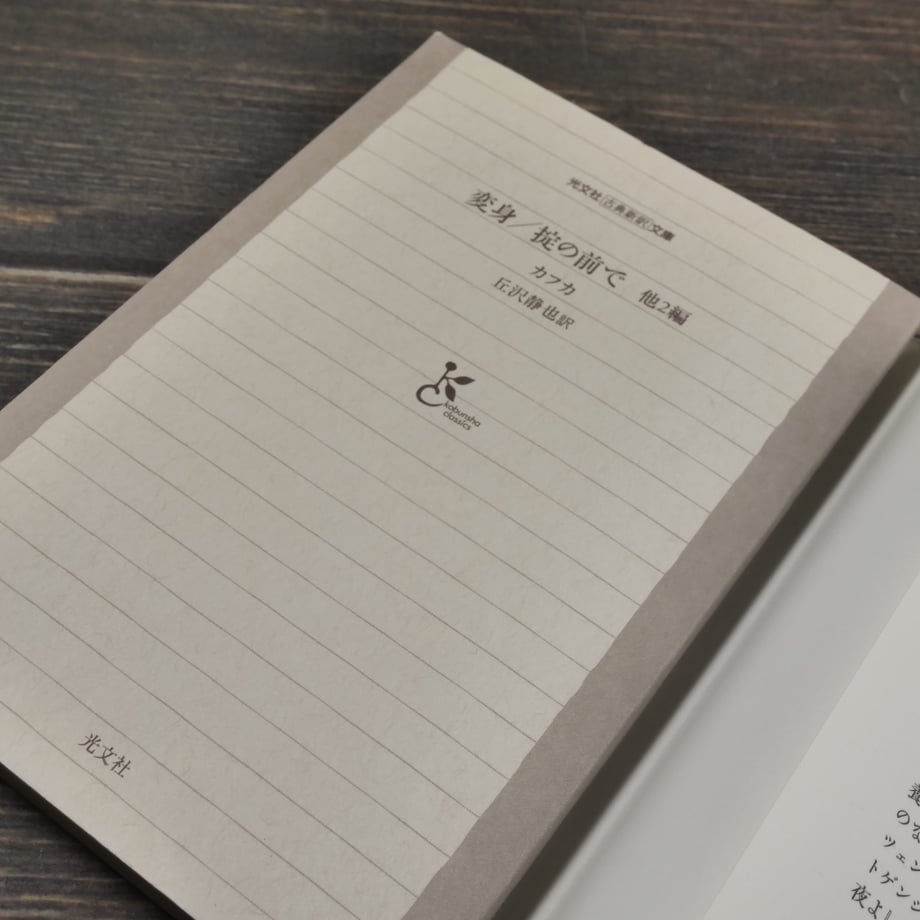 光文社古典新訳文庫
変身／掟の前で 他2編
カフカ
丘沢静也訳
kobunsha
classics
光文社
のな
ツェン
トゲンシ
夜よし